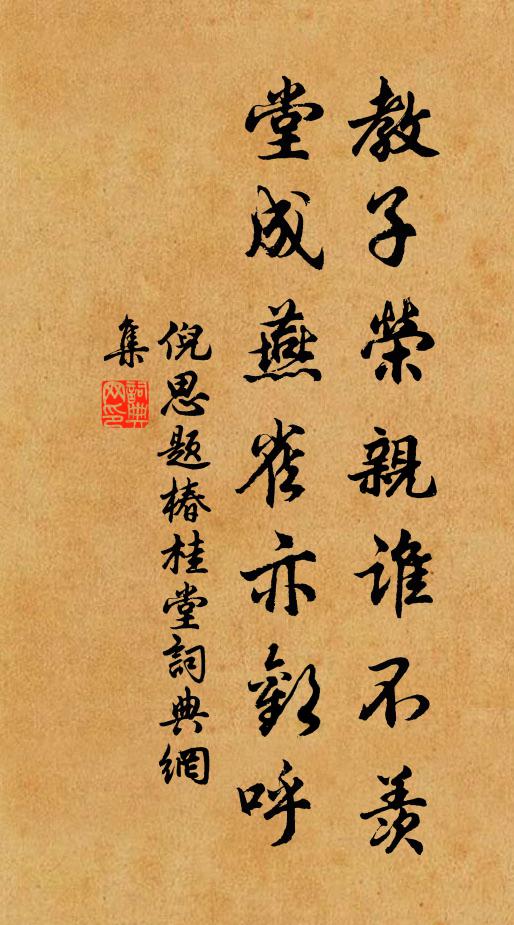 教子榮親誰不羨
堂成燕雀亦歡呼
倪思题椿桂堂詞典網
集
詞典網印